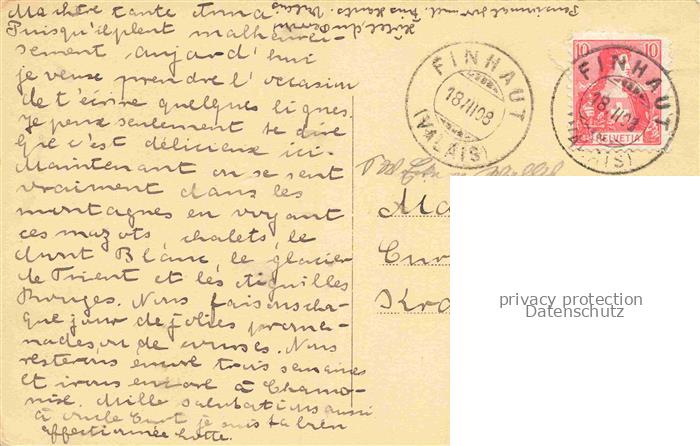 Ma chère tante Anna
Puisqu'il pleut malheureu-
sement aujourd'hui
je veux prendre l'occasion
de t'écrire quelques lignes.
Je peux seulement te dire
que c'est délicieux ici.
Maintenant on se sent
vraiment dans les
montagnes en voyant
ces mazots, chalets, le
Mont Blanc, le glacier
de Trient et les Aiguilles
Rouges. Nous faisons cha-
que jour de jolies prome-
nades ou de courses. Nous
resterons encore trois semaines
et irons encore à Chamo-
nix. Mille salutations aussi
à oncle Curt je suis ta bien
affectionnée Lotte.
FINHAUT
18.VII.08
(VALAIS)
FINHAUT
18.VII.08
(VALAIS)
10 10
HELVETIA
Ma
Cur
Kro
privacy protection
Datenschutz